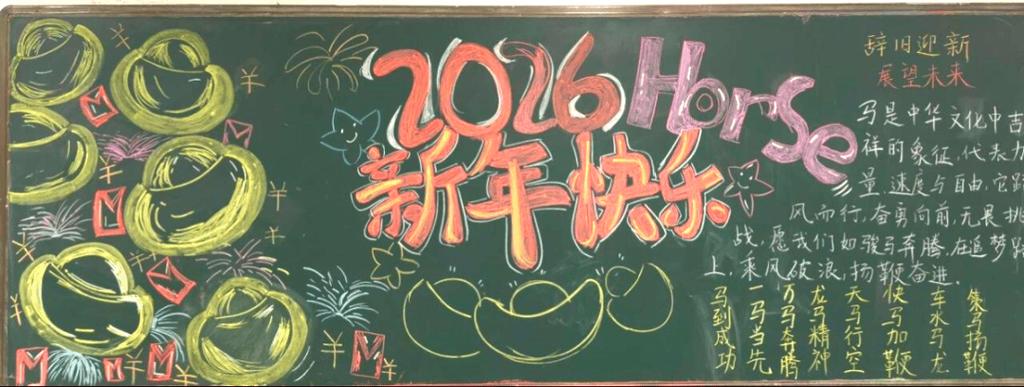 2026 Horse
新年快乐
辞旧迎新
展望未来
马是中华文化中吉
祥的象征,代表力
量,速度与自由,它踏
风而行,奋勇向前,无畏挑
战,愿我们如骏马奔腾,在追梦路
上,乘风破浪,扬鞭奋进.
马到成功
一马当先
万马奔腾
龙马精神
天马行空
快马加鞭
车水马龙
策马扬鞭
¥
¥
¥
¥
¥
¥
¥
¥